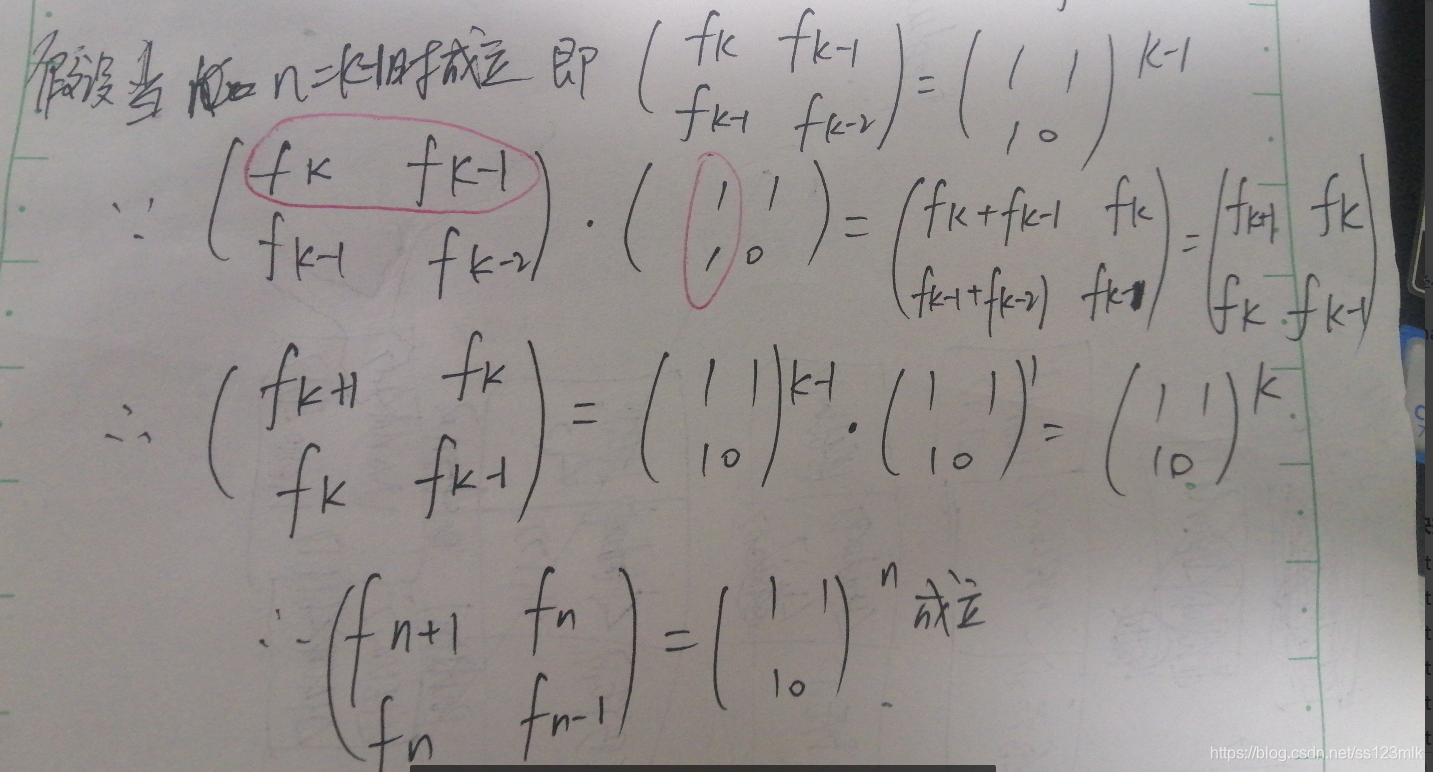 假设当 n=k-1时成立 即 (fk fk-1 fk-1 fk-2) = (1 1 1 0)^k-1
∵ (fk fk-1 fk-1 fk-2) · (1 1 1 0) = (fk+fk-1 fk fk-1+fk-2 fk-1) = (fk+1 fk fk fk-1)
∴ (fk+1 fk fk fk-1) = (1 1 1 0)^k-1 · (1 1 1 0)^1 = (1 1 1 0)^k
∴ (fn+1 fn fn fn-1) = (1 1 1 0)^n 成立
https://blog.csdn.net/ss123mlk